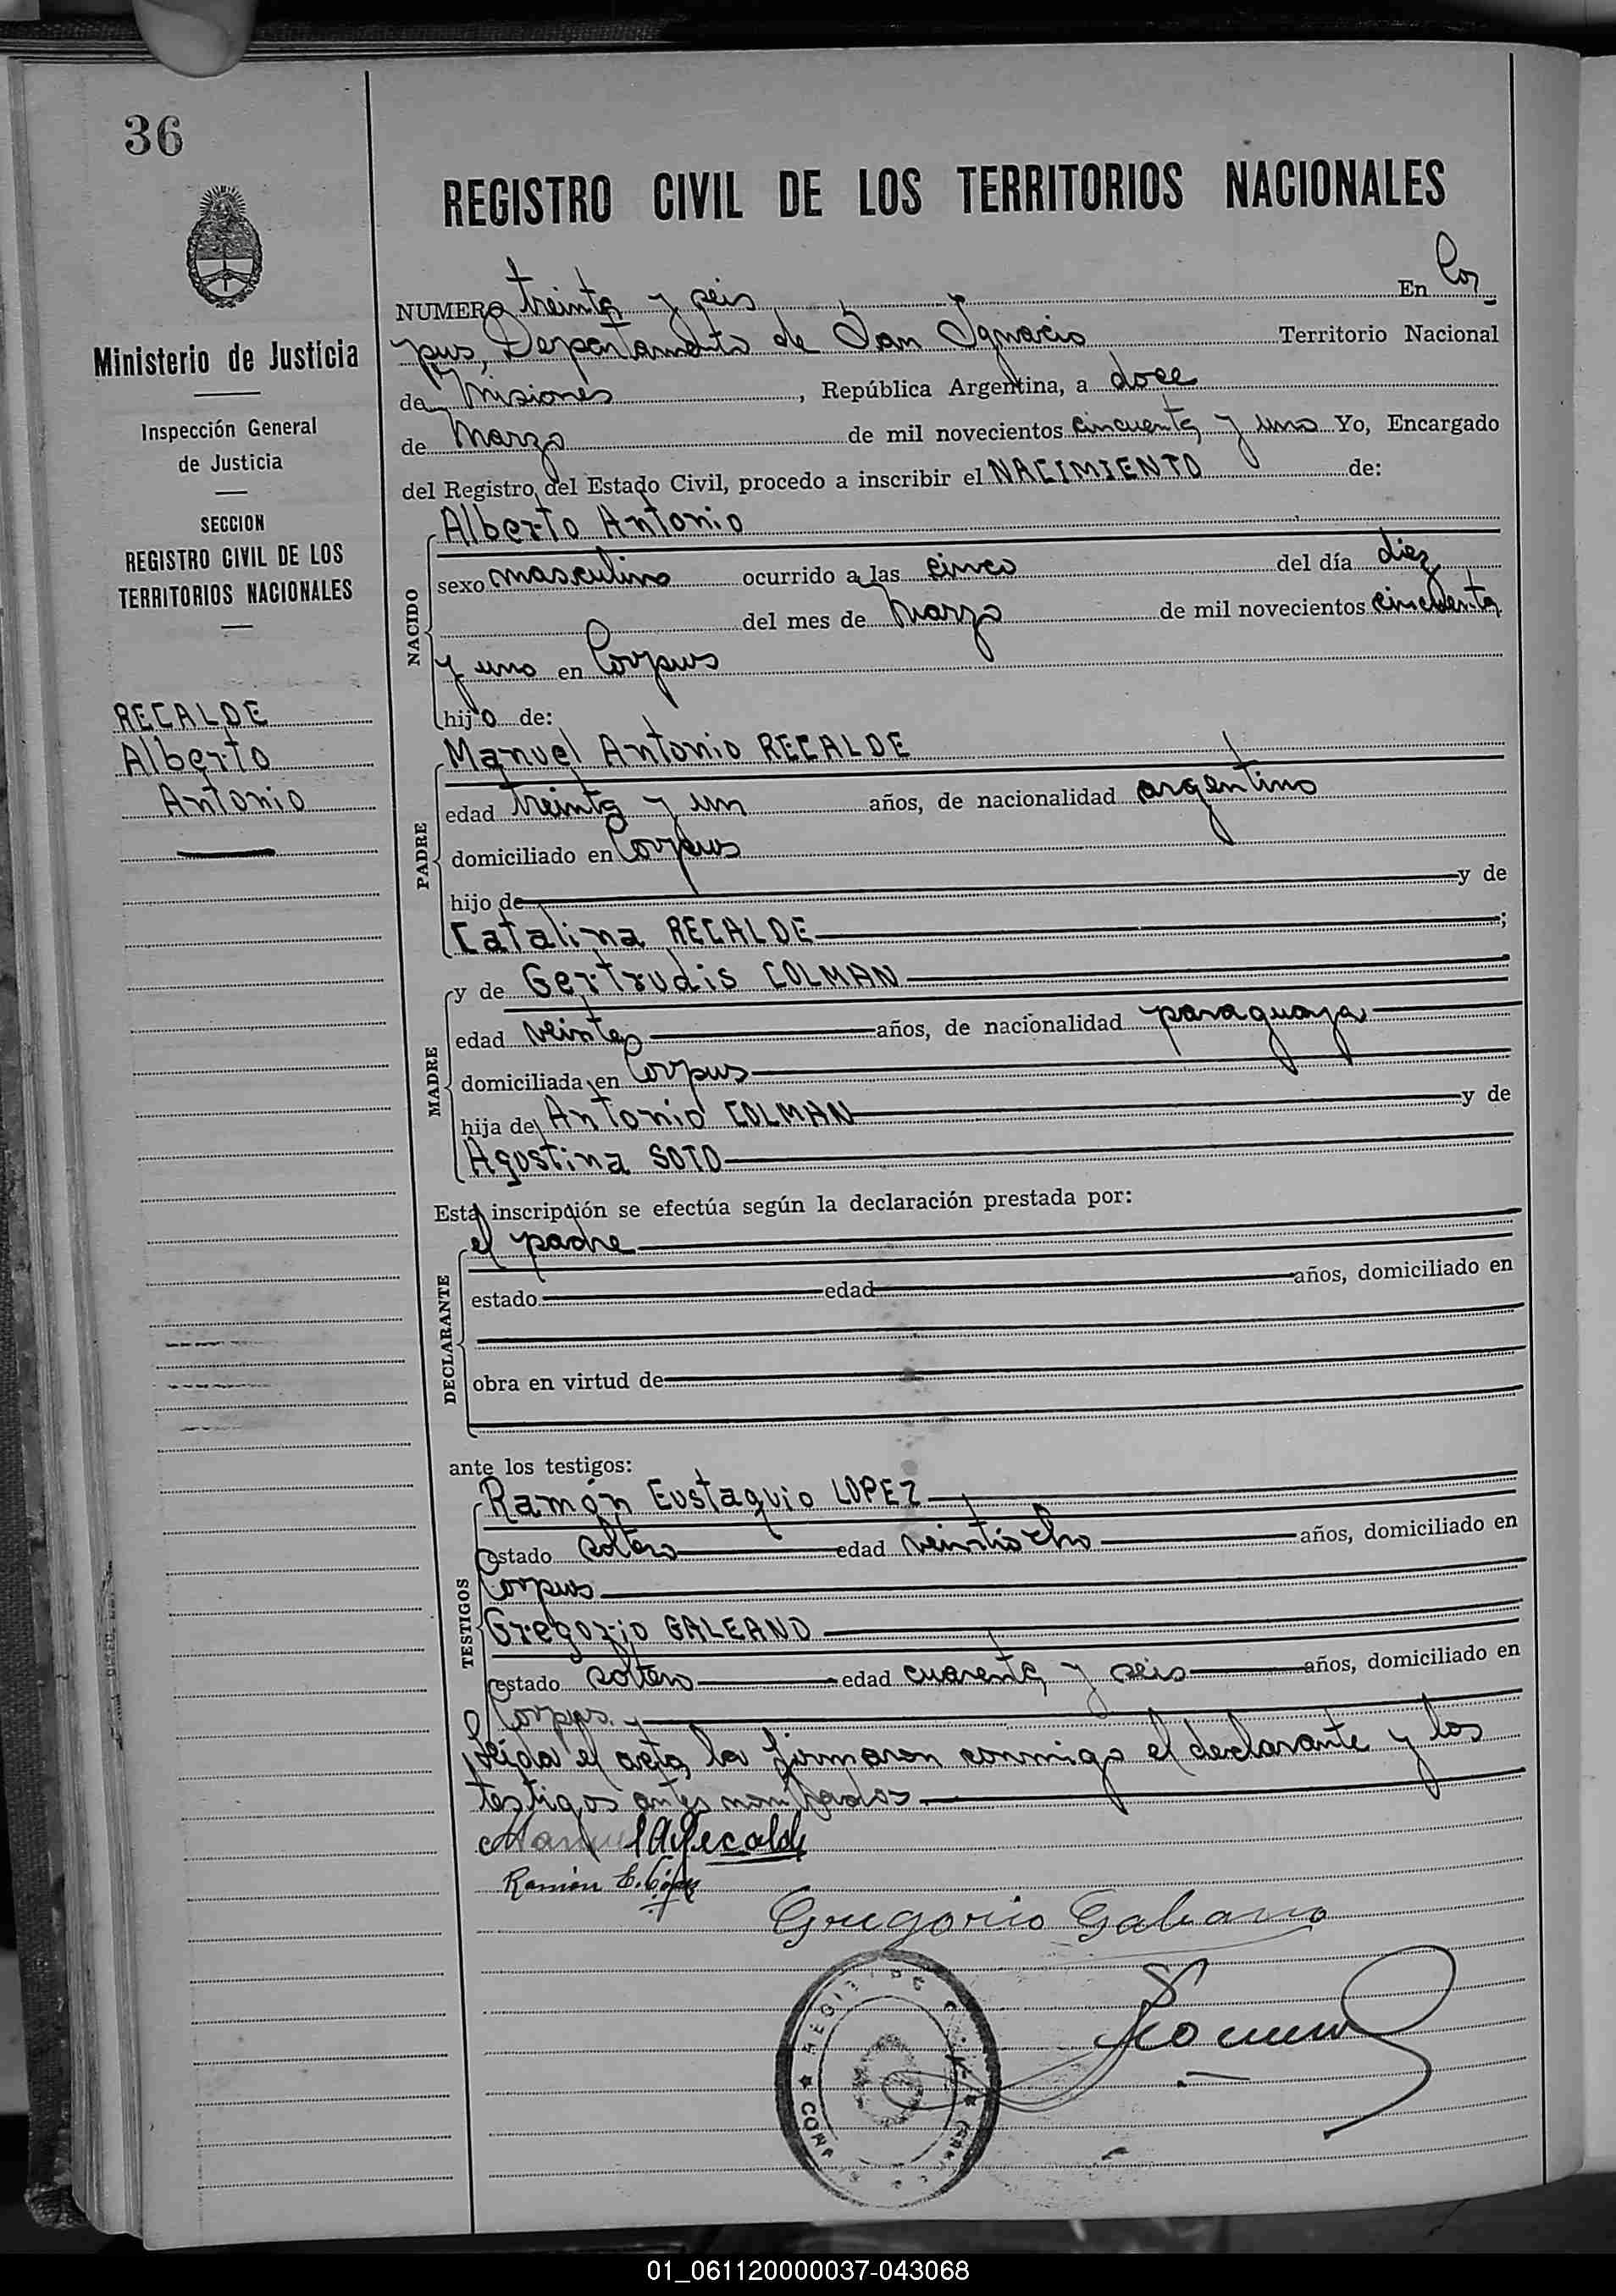 36
REGISTRO CIVIL DE LOS TERRITORIOS NACIONALES
Ministerio de Justicia
Inspección General
de Justicia
SECCION
REGISTRO CIVIL DE LOS
TERRITORIOS NACIONALES
RECALDE
Alberto
Antonio
NUMERO treinta y seis En Cor
pus, Departamento de San Ignacio Territorio Nacional
de Misiones, República Argentina, a doce
de Marzo de mil novecientos cincuenta y uno Yo, Encargado
del Registro del Estado Civil, procedo a inscribir el NACIMIENTO de:
NACIDO
Alberto Antonio
sexo masculino ocurrido a las cinco del día diez
del mes de Marzo de mil novecientos cincuenta
y uno en Corpus
hijo de:
PADRE
Manuel Antonio RECALDE
edad treinta y un años, de nacionalidad argentino
domiciliado en Corpus
hijo de y de
Catalina RECALDE ;
MADRE
y de Gertrudis COLMAN
edad veinte años, de nacionalidad paraguaya
domiciliada en Corpus
hija de Antonio COLMAN y de
Agostina SOTO
Esta inscripción se efectúa según la declaración prestada por:
DECLARANTE
el padre
estado edad años, domiciliado en
obra en virtud de
ante los testigos:
TESTIGOS
Ramón Eustaquio LOPEZ
estado soltero edad veintiocho años, domiciliado en
Corpus
Gregorio GALEANO
estado soltero edad cuarenta y seis años, domiciliado en
Corpus.
Leída el acta, la firmaron conmigo el declarante y los
testigos antes nombrados
Manuel A Recalde
Ramón E. López
Gregorio Galeano
01_061120000037-043068